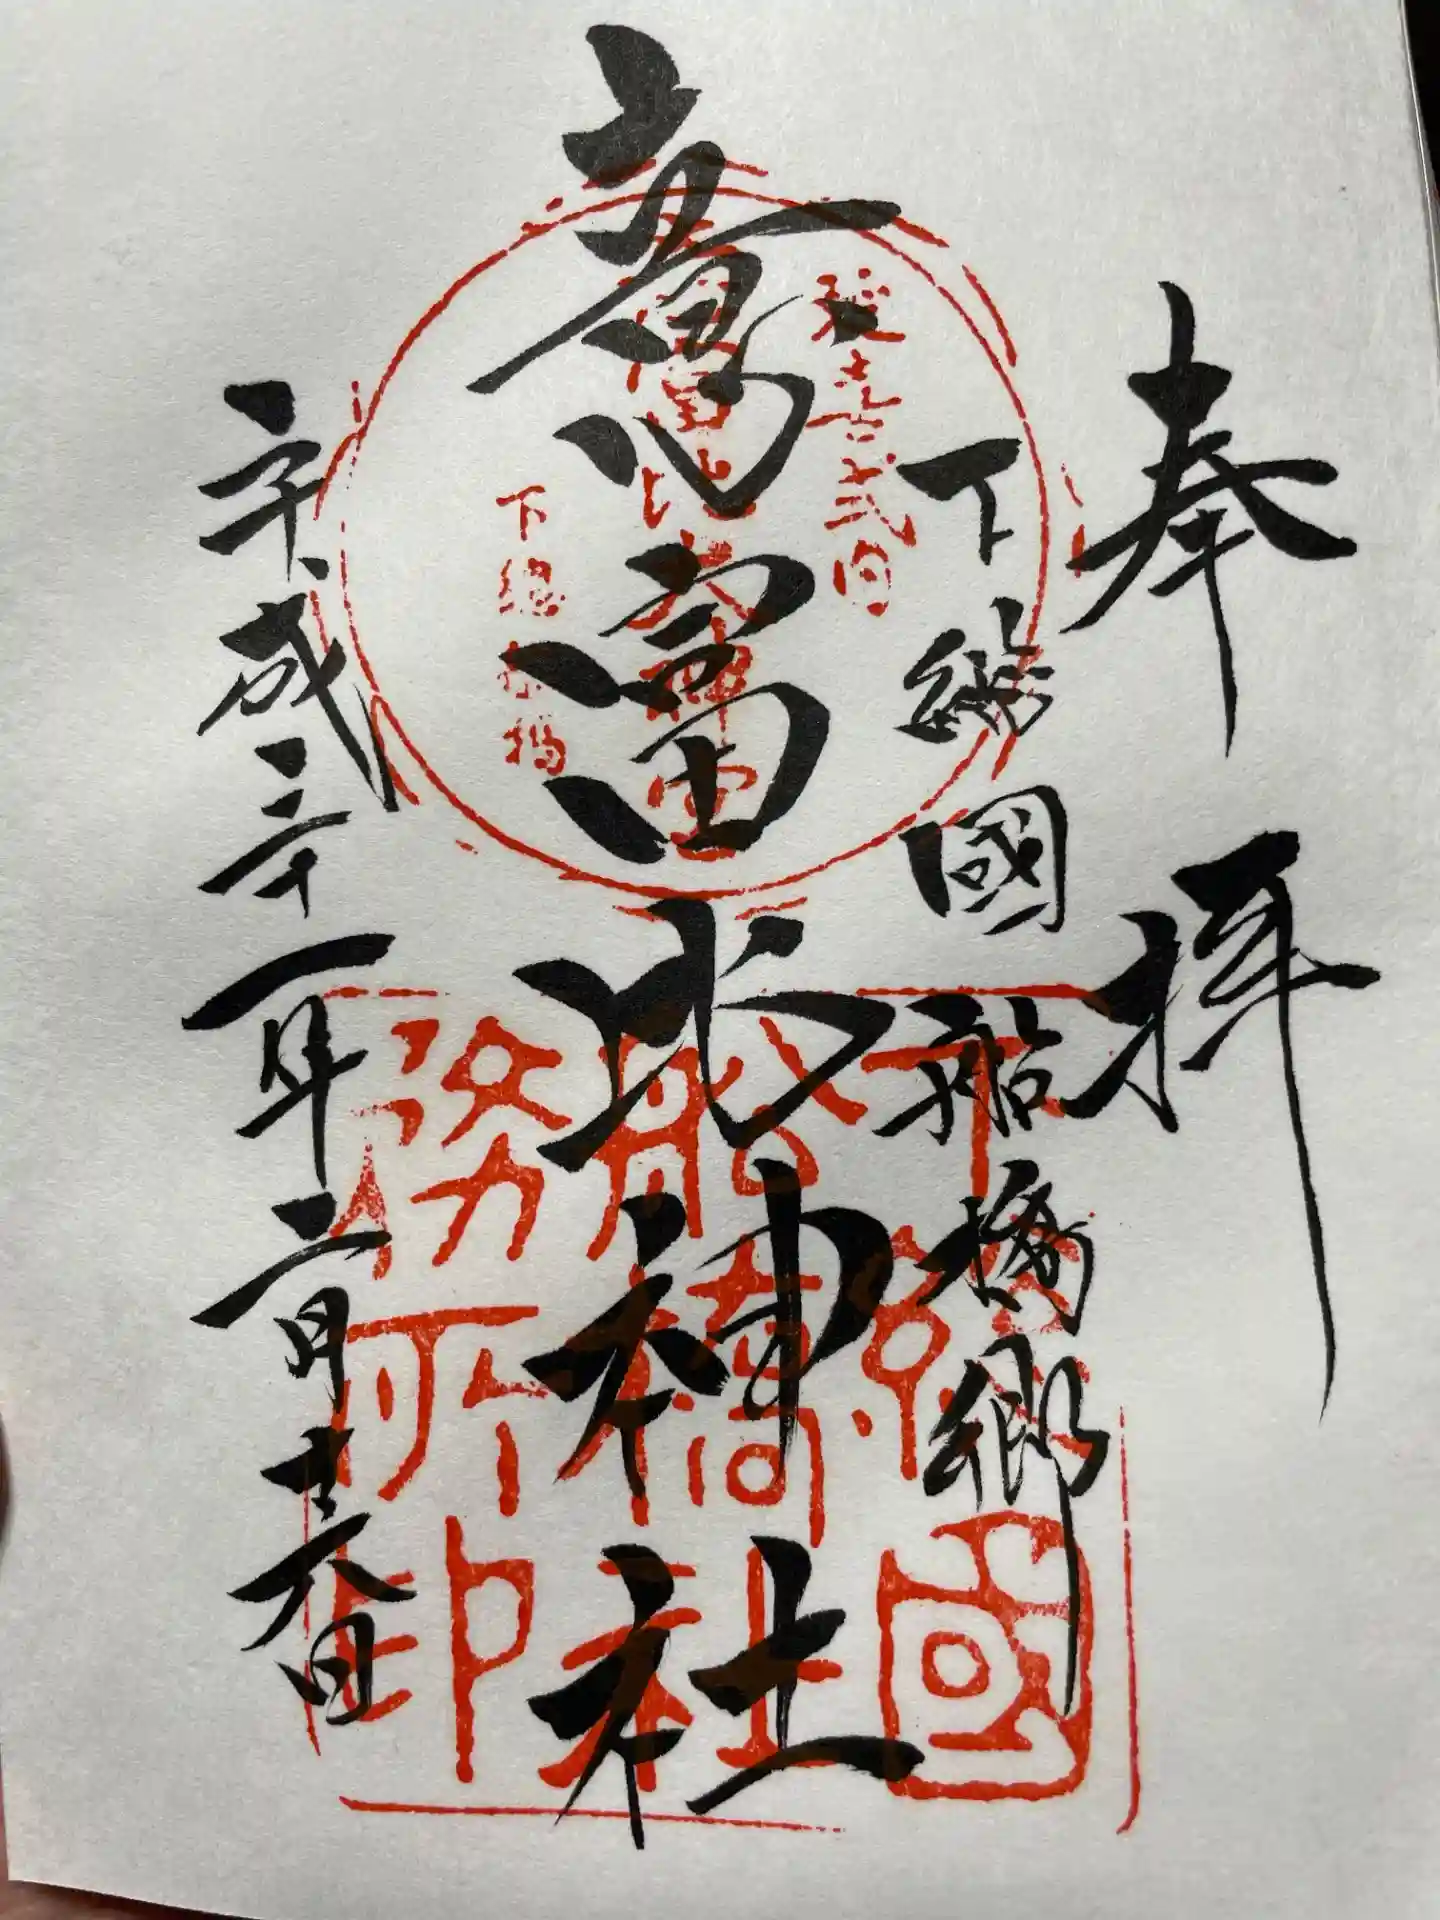 奉拝
下総國船橋郷
意富比神社
平成三十一年二月十六日
延喜式内
意富比大神宮
下總船橋
下總國
船橋社
務所印